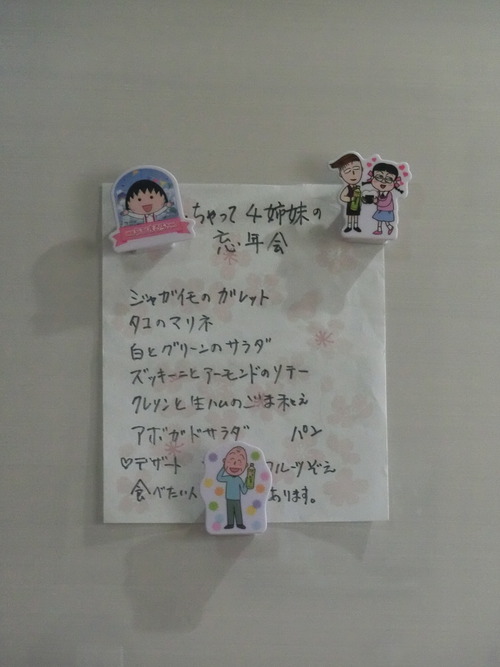 ちゃって 4姉妹の
忘年会
ジャガイモのガレット
タコのマリネ
白とグリーンのサラダ
ズッキーニとアーモンドのソテー
クレソンと生ハムのごま和え
アボガドサラダ パン
♡デザート フルーツぞえ
食べたい人 あります。